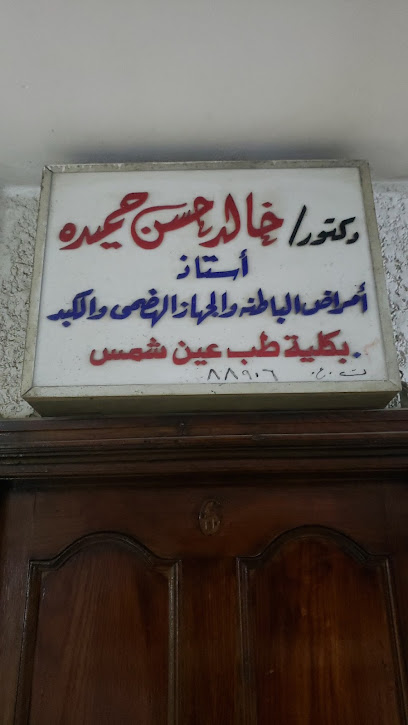 دكتور/ خالد حسن حميده
أستاذ
أمراض الباطنه والجهاز الهضمى والكبد
بكلية طب عين شمس.
ت.ع. ٨٨٩٠٦